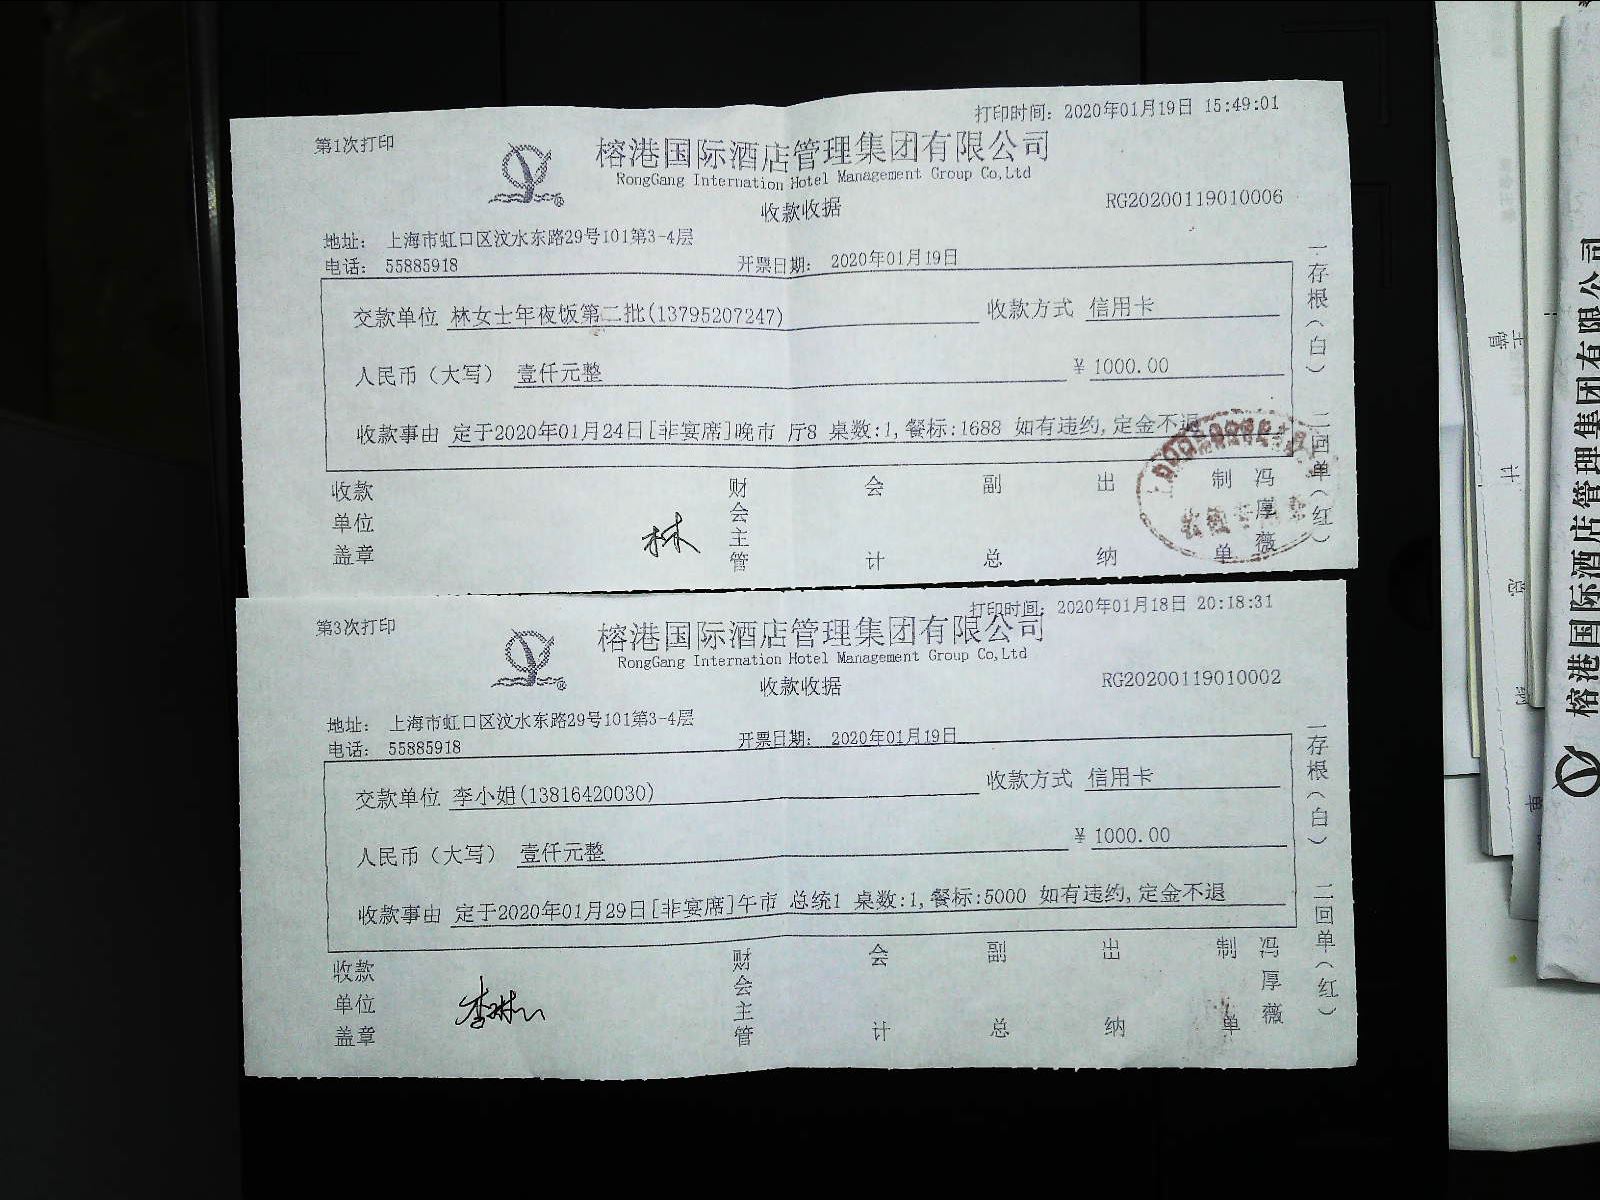 打印时间: 2020年01月19日 15:49:01
第1次打印
榕港国际酒店管理集团有限公司
RongGang Internation Hotel Management Group Co,Ltd
收款收据
RG20200119010006
地址: 上海市虹口区汶水东路29号101第3-4层
电话: 55885918
开票日期: 2020年01月19日
交款单位 林女士年夜饭第二批(13795207247)
收款方式 信用卡
人民币（大写） 壹仟元整
¥ 1000.00
收款事由 定于2020年01月24日[非宴席]晚市 厅8 桌数:1,餐标:1688 如有违约,定金不退
收款单位盖章
林
财会主管
会计
副总
出纳
制单
冯厚薇
一存根(白)
二回单(红)
打印时间: 2020年01月18日 20:18:31
第3次打印
榕港国际酒店管理集团有限公司
RongGang Internation Hotel Management Group Co,Ltd
收款收据
RG20200119010002
地址: 上海市虹口区汶水东路29号101第3-4层
电话: 55885918
开票日期: 2020年01月19日
交款单位 李小姐(13816420030)
收款方式 信用卡
人民币（大写） 壹仟元整
¥ 1000.00
收款事由 定于2020年01月29日[非宴席]午市 总统1 桌数:1,餐标:5000 如有违约,定金不退
收款单位盖章
财会主管
会计
副总
出纳
制单
冯厚薇
一存根(白)
二回单(红)
榕港国际酒店管理集团有限公司
主管
计
总
纳
单